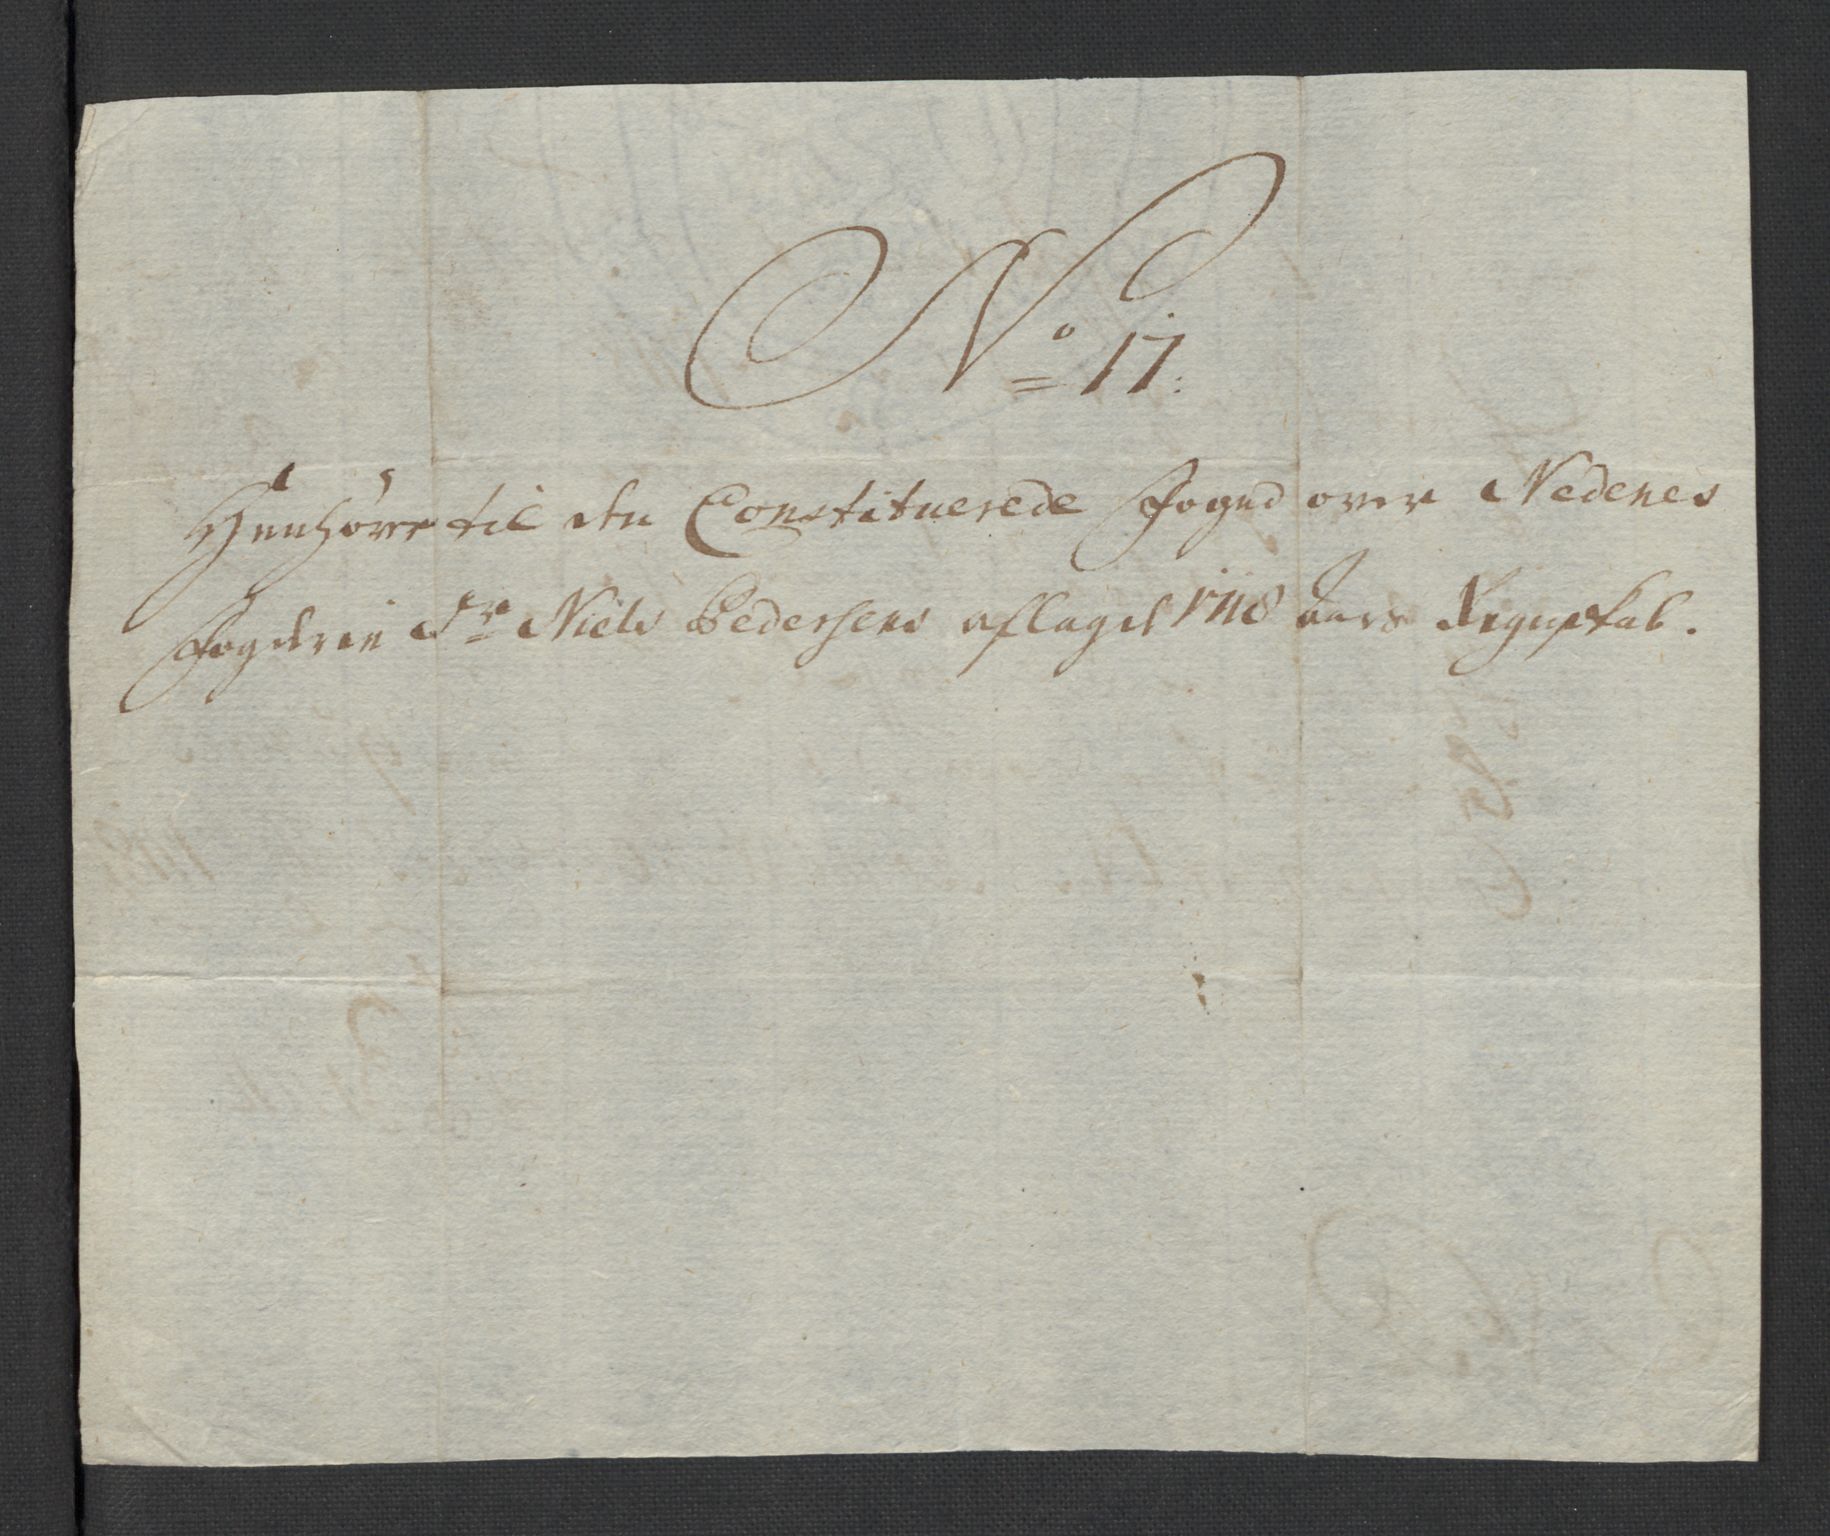 No 17:
Henhører til den Constituerede Fogud over Nedenes
Fogderie Sr Niels Pedersens aflagde 1718 aars Regnskab.